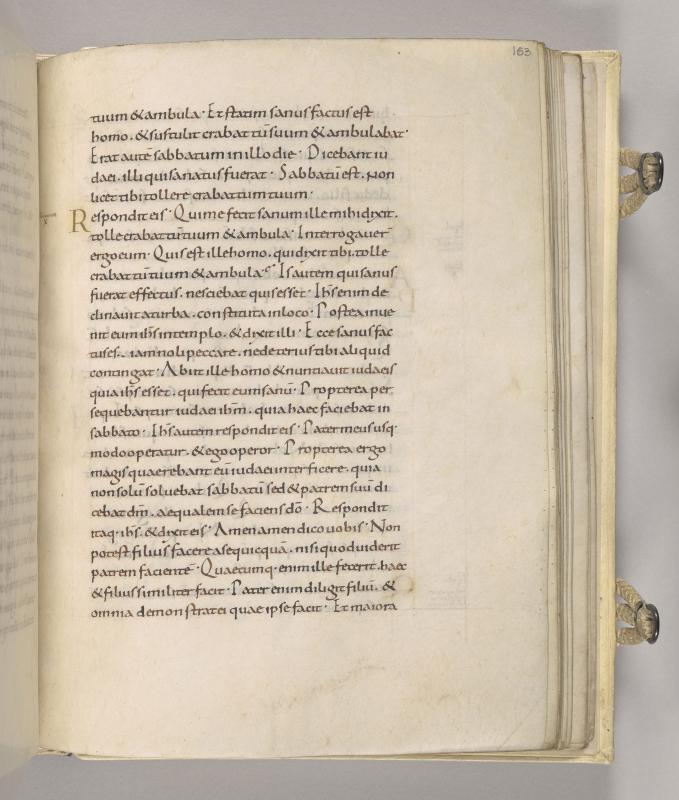 163
tuum & ambula · Et statim sanus factus est
homo . & sustulit crabattū suum & ambulabat ·
Erat autē sabbatum in illo die · Dicebant iu
daei . illi qui sanatus fuerat · Sabbatū est . Non
licet tibi tollere crabattum tuum ·
Respondit eis · Qui me fecit sanum ille mihi dixit .
tolle crabattū tuum & ambula · Interrogauer̄
ergo eum · Quis est ille homo . qui dixit tibi . tolle
crabattū tuum & ambula · Is autem qui sanus
fuerat effectus . nesciebat quis esset · Ih̄s enim de
clinauit a turba . constituta in loco · Postea inue
nit eum ih̄s in templo . & dixit illi · Ecce sanus fac
tus es . iam noli peccare . ne deterius tibi aliquid
contingat · Abiit ille homo & nuntiauit iudaeis
quia ih̄s esset . qui fecit eum sanū · Propterea per
sequebantur iudaei ih̄m . quia haec faciebat in
sabbato · Ih̄s autem respondit eis · Pater meus usq·
modo operatur . & ego operor · Propterea ergo
magis quaerebant eū iudaei interficere . quia
non solū soluebat sabbatū sed & patrem suū di
cebat dm̄ . aequalem se faciens dō · Respondit
itaq· ih̄s . & dixit eis · Amen amen dico uobis · Non
potest filius facere a se quicquā . nisi quod uiderit
patrem facientē · Quaecumq· enim ille fecerit . haec
& filius similiter facit · Pater enim diligit filiū . &
omnia demonstrat ei quae ipse facit · Et maiora